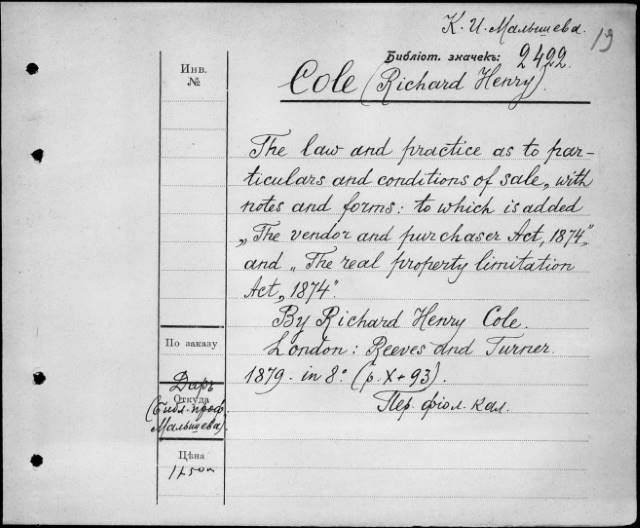 К. И. Малышева. 19
Библіот. значекъ: 2422.
Инв.
№
Cole (Richard Henry).
The law and practice as to par-
ticulars and conditions of sale, with
notes and forms: to which is added
„The vendor and purchaser Act, 1874”
and „The real property limitation
Act, 1874”.
By Richard Henry Cole.
London: Reeves and Turner.
1879. in 8.° (p. X + 93).
Пер. фіол. кал.
По заказу
Даръ
Откуда
(Библ. проф.
Малышева).
Цѣна